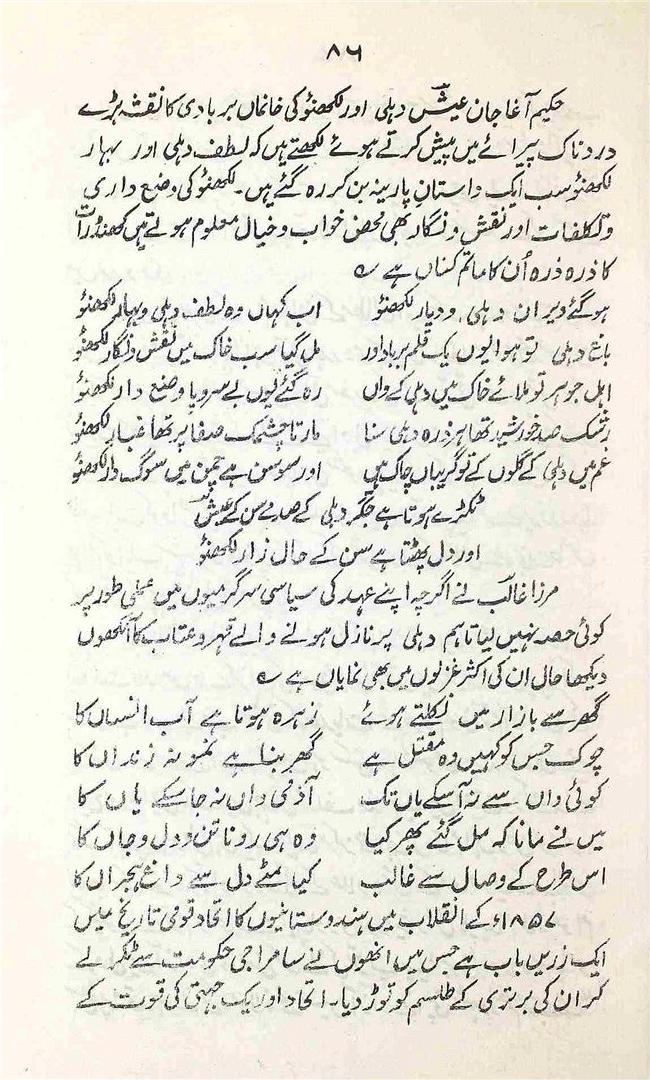 ۸۶
حکیم آغا جان عیش دہلی اور لکھنؤ کی خانماں بربادی کا نقشہ بڑے
دردناک پیرائے میں پیش کرتے ہوئے لکھتے ہیں کہ لطف دہلی اور بہار
لکھنؤ سب ایک داستانِ پارینہ بن کر رہ گئے ہیں۔ لکھنؤ کی وضع داری
و تکلفات اور نقش و نگار بھی محض خواب و خیال معلوم ہوتے ہیں کھنڈرات
کا ذرہ ذرہ اُن کا ماتم کناں ہے ؎
ہو گئے ویران دہلی و دیارِ لکھنؤ اب کہاں وہ لطف دہلی و بہارِ لکھنؤ
باغ دہلی تو ہوا یوں یک قلم برباد اور مل گیا سب خاک میں نقش و نگار لکھنؤ
اہل جوہر تو ملائے خاک میں دہلی کے واں رہ گئے یوں بے سروپا وضع دار لکھنؤ
رشک صد خورشید تھا ہر ذرہ دہلی سنا مارتا چشمک صفا پر تھا غبار لکھنؤ
غم میں دہلی کے گلوں کے تو گریباں چاک ہیں اور سوسن ہے چمن میں سوگ دار لکھنؤ
ٹکڑے ہوتا ہے جگر دہلی کے صدمے سن کے عیش
اور دل پھٹتا ہے سن کے حال زار لکھنؤ
مرزا غالب نے اگرچہ اپنے عہد کی سیاسی سرگرمیوں میں عملی طور پر
کوئی حصہ نہیں لیا تاہم دہلی پر نازل ہونے والے قہر و عتاب کا آنکھوں
دیکھا حال ان کی اکثر غزلوں میں بھی نمایاں ہے ؎
گھر سے بازار میں نکلتے ہوئے زہرہ ہوتا ہے آب انساں کا
چوک جس کو کہیں وہ مقتل ہے گھر بنا ہے نمونہ زنداں کا
کوئی واں سے نہ آ سکے یاں تک آدمی واں نہ جا سکے یاں کا
میں نے مانا کہ مل گئے پھر کیا وہ ہی رونا تن و دل و جاں کا
اس طرح کے وصال سے غالب کیا مٹے دل سے داغ ہجراں کا
۱۸۵۷ء کے انقلاب میں ہندوستانیوں کا اتحاد قومی تاریخ میں
ایک زریں باب ہے جس میں انھوں نے سامراجی حکومت سے ٹکر لے
کر ان کی برتری کے طلسم کو توڑ دیا۔ اتحاد اور یک جہتی کی قوت کے